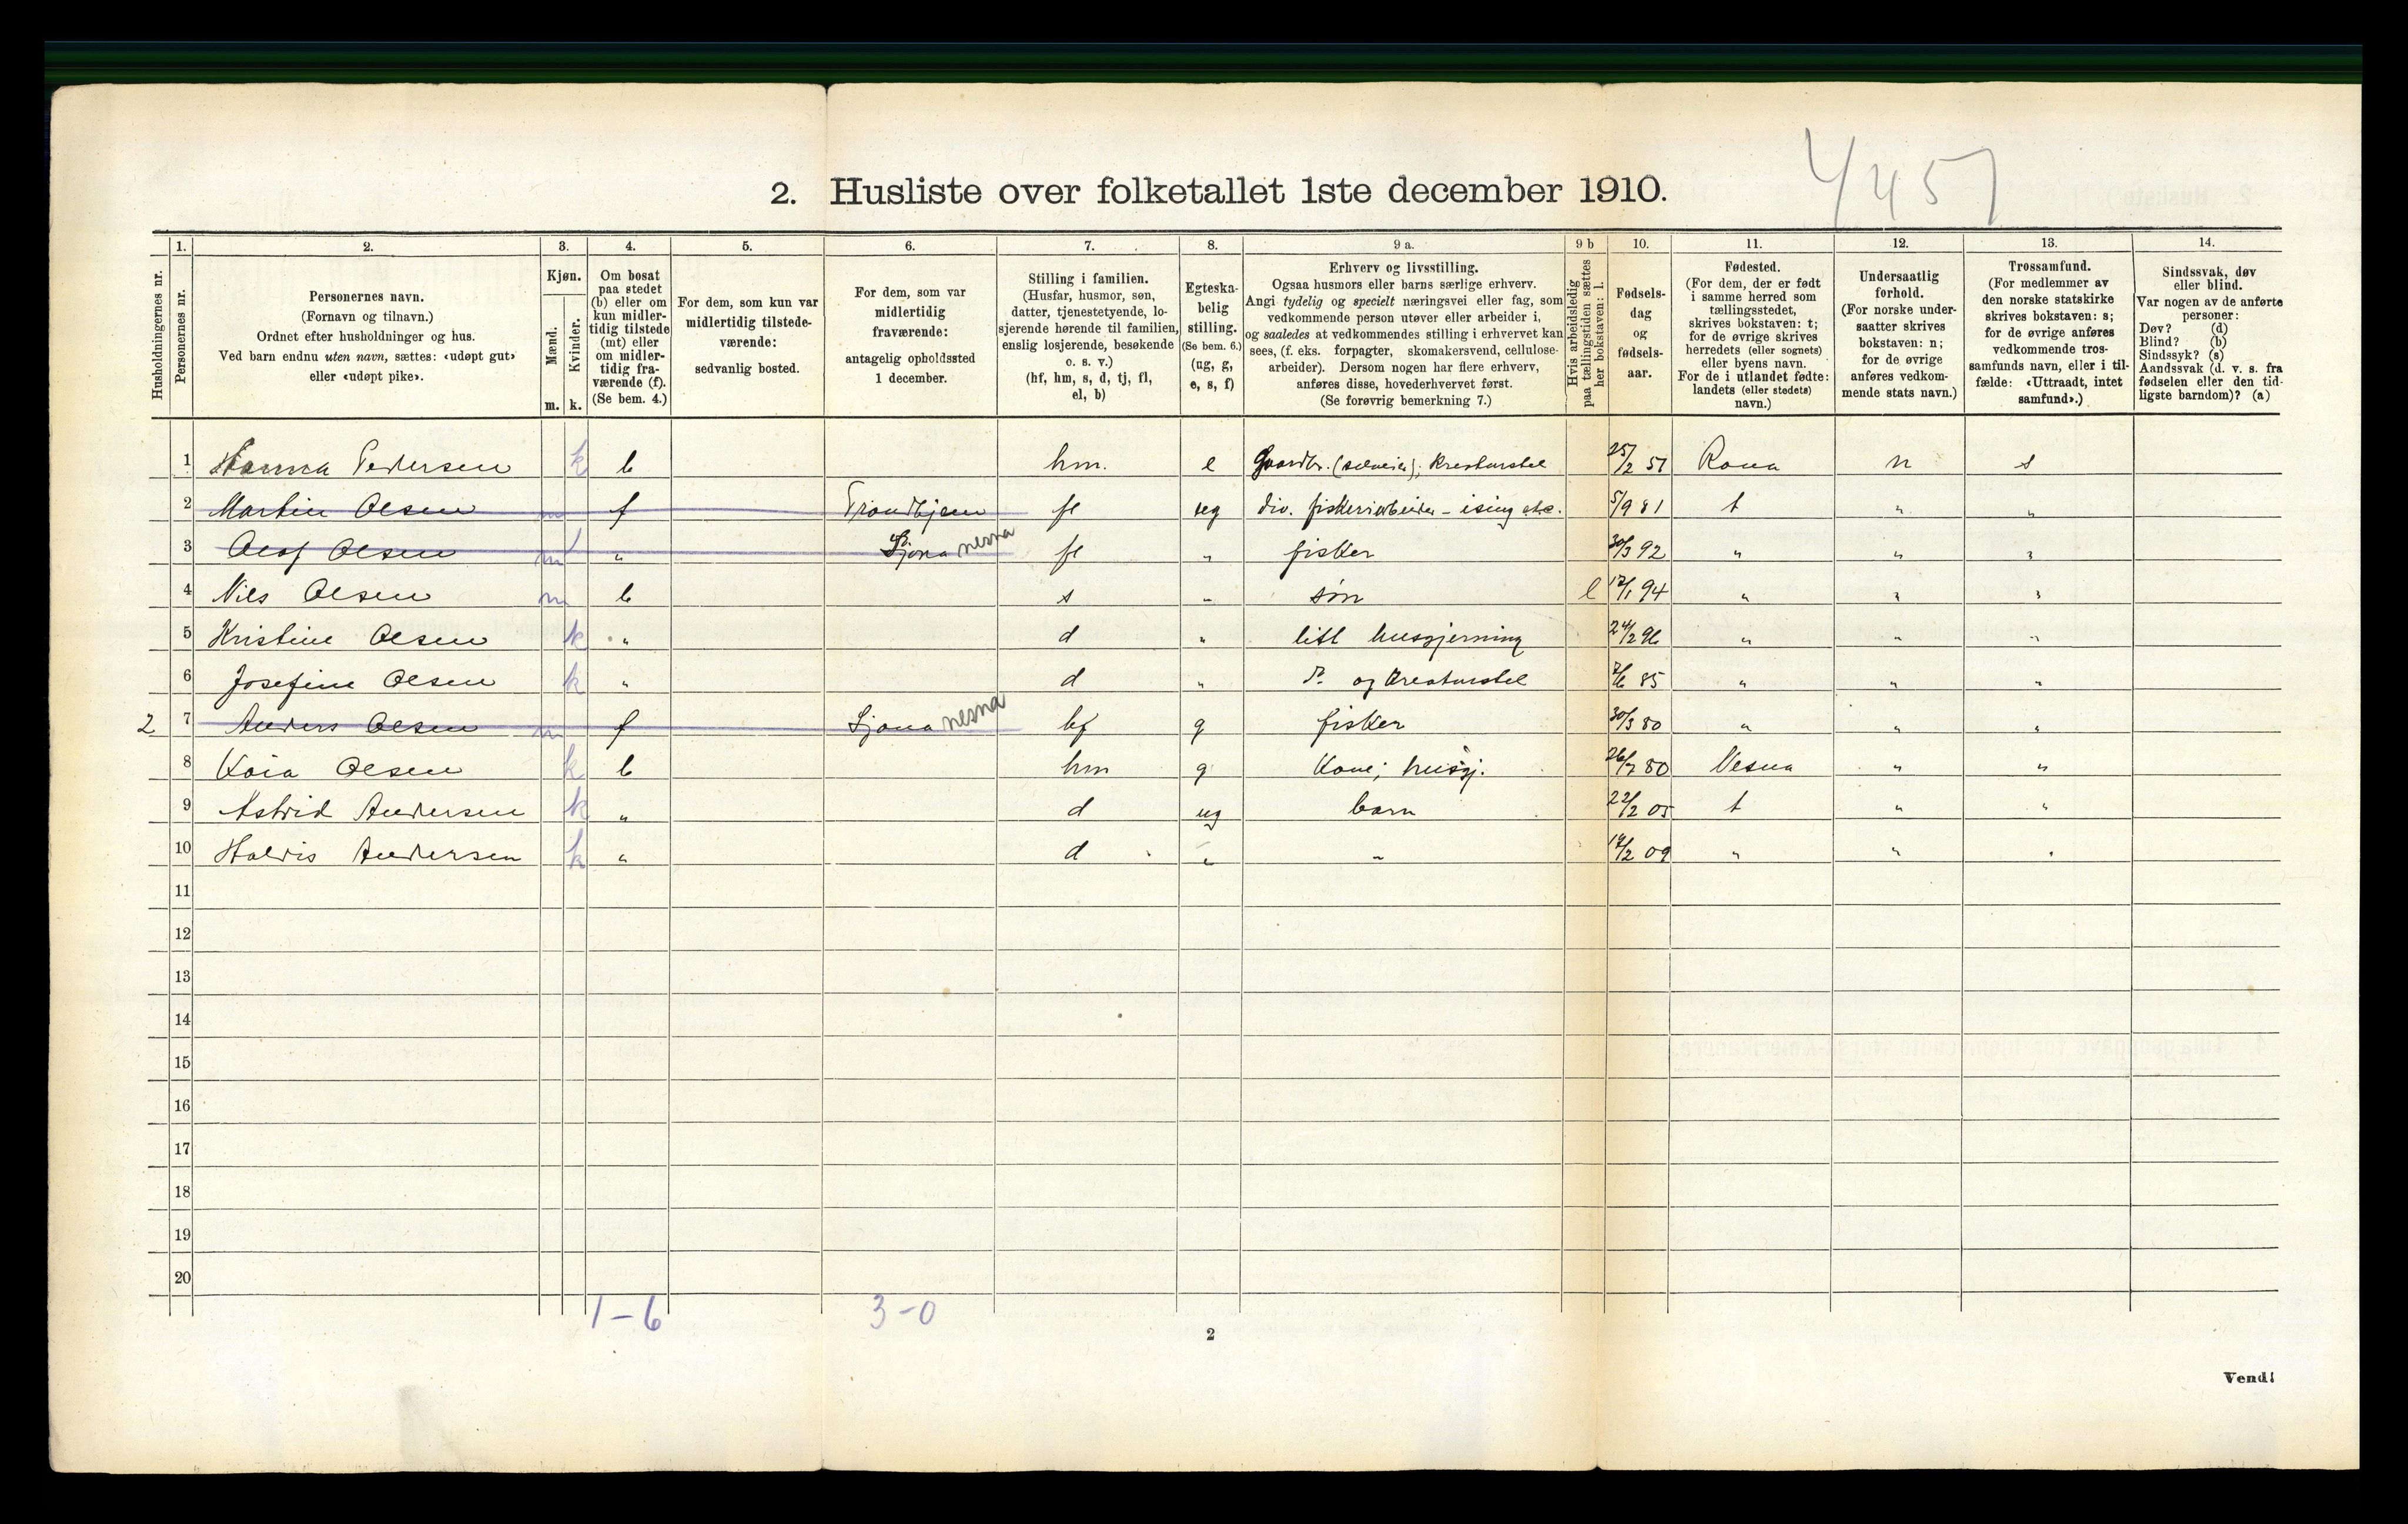 4457
2. Husliste over folketallet 1ste december 1910.
Husholdningernes nr.
1. Personernes nr.
2. Personernes navn. (Fornavn og tilnavn.) Ordnet efter husholdninger og hus. Ved barn endnu uten navn, sættes: «udøpt gut» eller «udøpt pike».
3. Kjøn. Mænd. m. Kvinder. k.
4. Om bosat paa stedet (b) eller om kun midlertidig tilstede (mt) eller om midlertidig fraværende (f). (Se bem. 4.)
5. For dem, som kun var midlertidig tilstedeværende: sedvanlig bosted.
6. For dem, som var midlertidig fraværende: antagelig opholdssted 1 december.
7. Stilling i familien. (Husfar, husmor, søn, datter, tjenestetyende, losjerende hørende til familien, enslig losjerende, besøkende o. s. v.) (hf, hm, s, d, tj, fl, el, b)
8. Egteskabelig stilling. (Se bem. 6.) (ug, g, e, s, f)
9 a. Erhverv og livsstilling. Ogsaa husmors eller barns særlige erhverv. Angi tydelig og specielt næringsvei eller fag, som vedkommende person utøver eller arbeider i, og saaledes at vedkommendes stilling i erhvervet kan sees, (f. eks. forpagter, skomakersvend, cellulosearbeider). Dersom nogen har flere erhverv, anføres disse, hovederhvervet først. (Se forøvrig bemerkning 7.)
9 b Hvis arbeidsledig paa tællingstiden sættes her bokstaven: l.
10. Fødselsdag og fødselsaar.
11. Fødested. (For dem, der er født i samme herred som tællingsstedet, skrives bokstaven: t; for de øvrige skrives herredets (eller sognets) eller byens navn. For de i utlandet fødte: landets (eller stedets) navn.)
12. Undersaatlig forhold. (For norske undersaatter skrives bokstaven: n; for de øvrige anføres vedkommende stats navn.)
13. Trossamfund. (For medlemmer av den norske statskirke skrives bokstaven: s; for de øvrige anføres vedkommende trossamfunds navn, eller i tilfælde: «Uttraadt, intet samfund».)
14. Sindssvak, døv eller blind. Var nogen av de anførte personer: Døv? (d) Blind? (b) Sindssyk? (s) Aandssvak (d. v. s. fra fødselen eller den tidligste barndom)? (a)
1 Hanna Pedersen k b hm. e Gaardbr. (selveier); kreaturstel 25/2 51 Rana n s
2 Martin Olsen m f Trondhjem fl ug div. fiskeriarbeider - ising etc. 5/9 81 t " "
3 Olof Olsen m " Sjona nesna fl " fisker 30/3 92 " " "
4 Nils Olsen m b s " søn l 17/1 94 " " "
5 Kristine Olsen k " d " litt husgjerning 24/2 96 " " "
6 Josefine Olsen k " d " Do og kreaturstel 7/6 85 " " "
2 7 Anders Olsen m f Sjona nesna hf g fisker 30/3 80 " " "
8 Kaia Olsen k b hm g Kone; husgj. 26/7 80 Nesna " "
9 Astrid Andersen k " d ug barn 22/2 05 t " "
10 Haldis Andersen k " d " " 17/2 09 " " "
11
12
13
14
15
16
17
18
19
20
1-6 3-0
2
Vend!